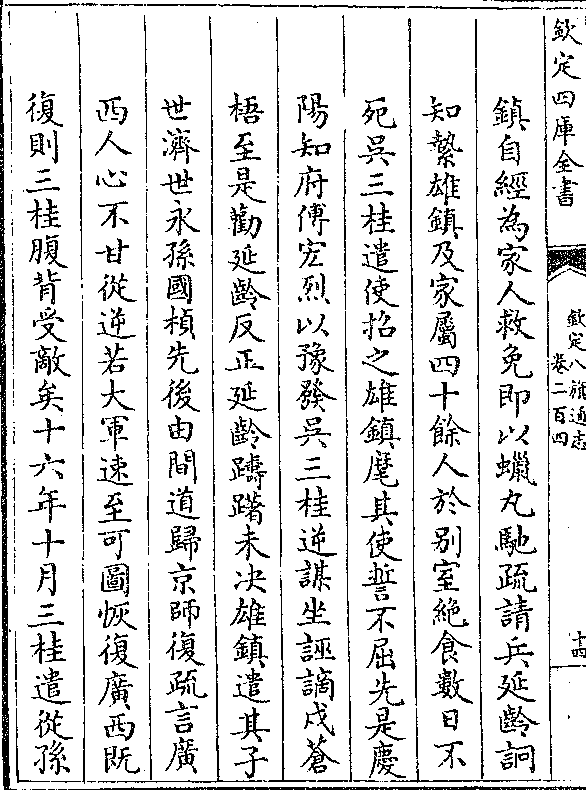 欽定四庫全書
欽定八旗通志
卷二百四
十四
鎮自經為家人救免即以蠟丸馳疏請兵延齡詗
知縶雄鎮及家屬四十餘人於别室絶食數日不
死吳三桂遣使招之雄鎮麾其使誓不屈先是慶
陽知府傅宏烈以豫發吳三桂逆謀坐誣謫戍蒼
梧至是勸延齡反正延齡躊躇未决雄鎮遣其子
世濟世永孫國楨先後由間道歸京師復疏言廣
西人心不甘從逆若大軍速至可圖恢復廣西既
復則三桂腹背受敵矣十六年十月三桂遣從孫